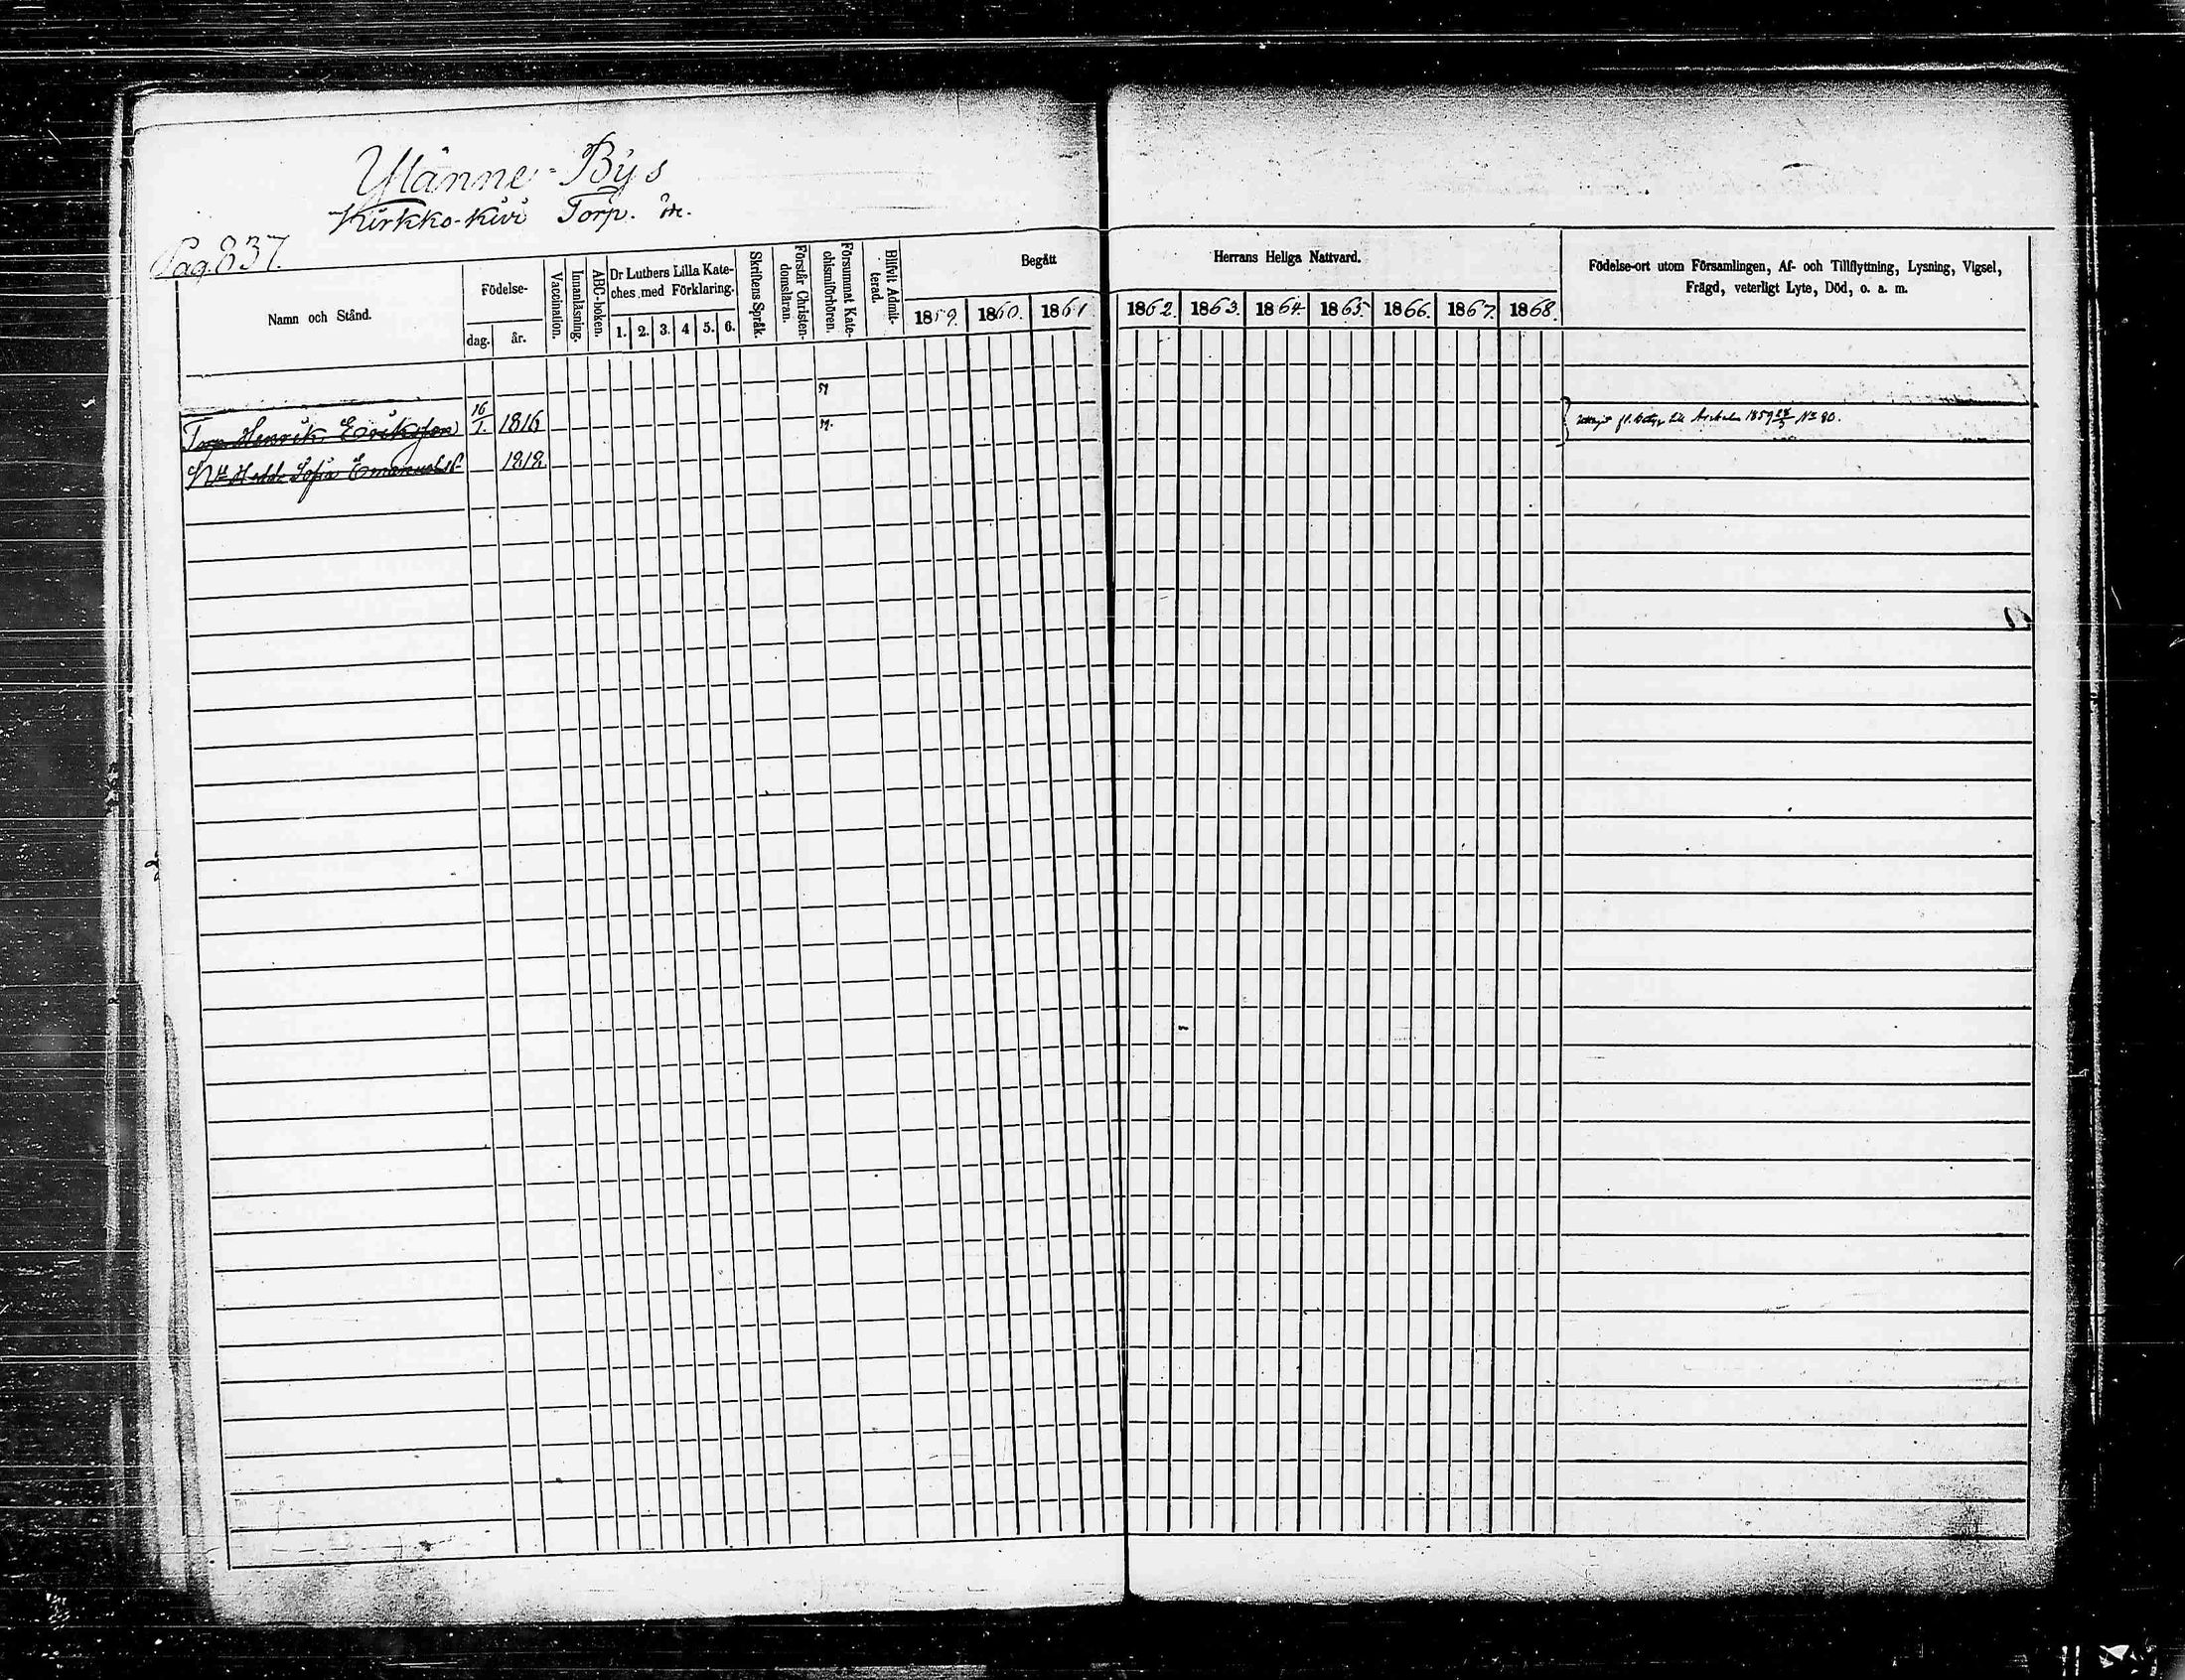 Ylänne-Bys
Kirkko-kivi Torp.
Pag. 837.
Namn och Stånd.
Födelse-
dag.
år.
Vaccination.
Innanläsning.
ABC-boken.
Dr Luthers Lilla Kate-
ches med Förklaring.
1. 2. 3. 4 5. 6.
Skriftens Språk.
Förstår Christen-
domsläran.
Försummat Kate-
chismiförhören.
Blifvit Admit-
terad.
Begått
Herrans Heliga Nattvard.
1859. 1860. 1861 1862. 1863. 1864. 1865. 1866. 1867. 1868.
Födelse-ort utom Församlingen, Af- och Tillflyttning, Lysning, Vigsel,
Frägd, veterligt Lyte, Död, o. a. m.
Torp. Henrik Eriksson 16/1. 1816 1859 No 80.
Sofia Emanuelsd 1818